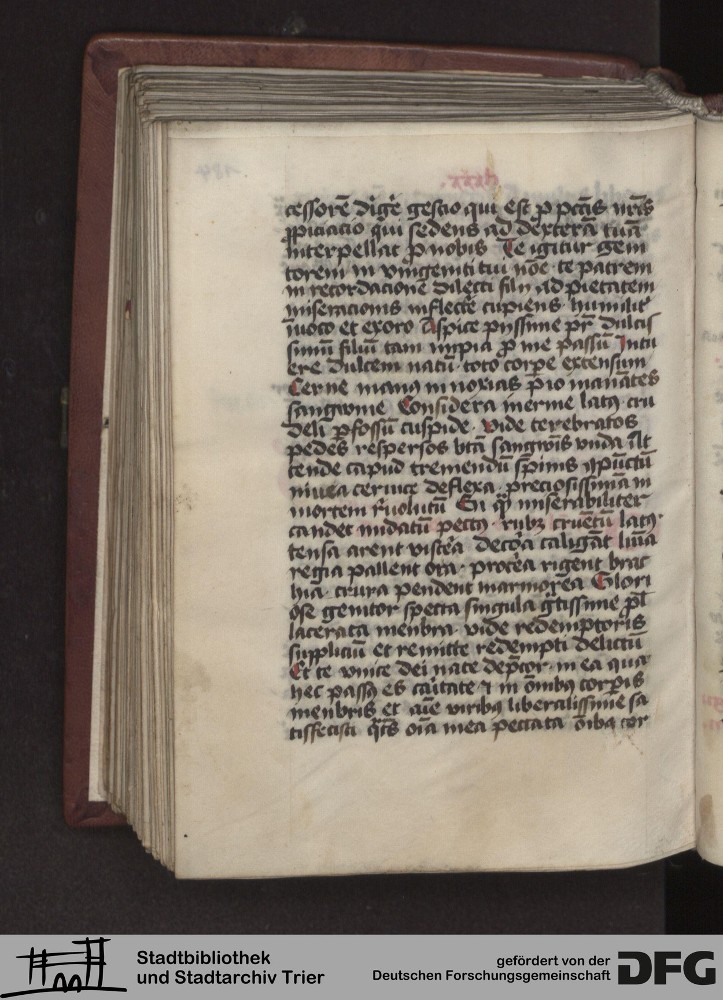 cessorē diḡe gestio qui est ꝓ pctīs nr̄is
ꝓpiciacio qui sedens ad dexterā tuā
interpellat ꝓ nobis Te igitur geni
torem in vnigeniti tui noīe te patrem
in recordacione dilecti filii ad pietatem
miseracionis inflecte cupiens humilit̄
īuoco et exoro Aspice pijssime pr̄ dulcis
simū filiū tam impia ꝓ me passū Intu
ere dulcem natū toto corpe extensum
Cerne manꝰ innoxias pio manātes
sangwine Considera inerme latꝰ cru
deli ꝑfossū cuspide vide terebratos
pedes respersos btā sangwīs vnda At
tende capud tremendū sp̄inis ꝯpūctū
niuea ceruice deflexa preciosissimā in
mortem r̄uolutū En qͥ miserabiliter
candet nudatū pectꝰ rubꝫ cruētū latꝰ
tensa arent viscēa decōra caligāt lūīa
regia pallent ora procēa rigent brac
hia crura pendent marmorea Glori
ose genitor specta singula gtissime pl̄
lacerata menbra vide redemptoris
suppliciū et remitte redempti delictū
Et te vnice dei nate dep̄cor in ea qua
hec passꝰ es caītate ⁊ in om̄ibꝰ corpis
menbris et aīe viribꝰ liberalissime sa
tisfecisti qt̄s oīa mea peccata om̄ibꝰ cor
Stadtbibliothek
und Stadtarchiv Trier
gefördert von der
Deutschen Forschungsgemeinschaft
DFG